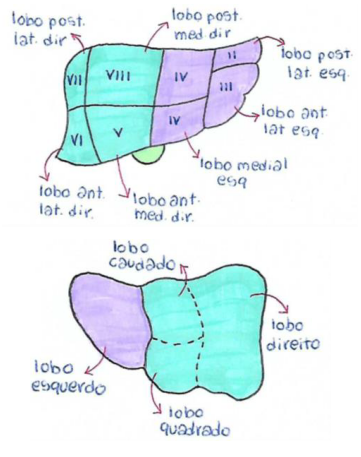 lobo post.
lat. dir
lobo post.
med. dir
lobo post.
lat. esq.
VII
VIII
IV
II
III
VI
V
IV
lobo ant.
lat esq.
lobo medial
esq
lobo ant.
lat. dir.
lobo ant.
med. dir.
lobo
caudado
lobo
direito
lobo
esquerdo
lobo
quadrado